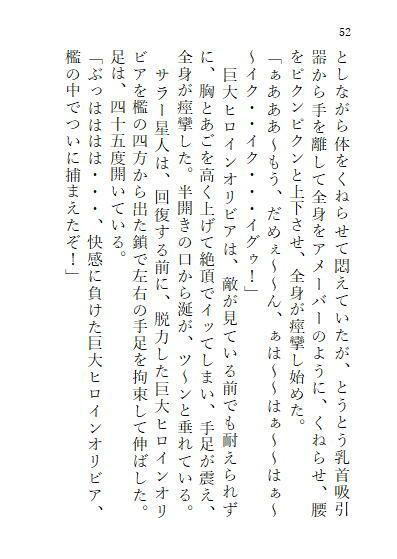 52
としながら体をくねらせて悶えていたが、とうとう乳首吸引
器から手を離して全身をアメーバーのように、くねらせ、腰
をピクンピクンと上下させ、全身が痙攣し始めた。
「ぁあああ～もう、だめぇ～～ん、ぁは～～はぁ～～はぁ～
～イク・・イク・・・イグゥ！」
巨大ヒロインオリビアは、敵が見ている前でも耐えられず
に、胸とあごを高く上げて絶頂でイッてしまい、手足が震え、
全身が痙攣した。半開きの口から涎が、ツ～ンと垂れている。
サラー星人は、回復する前に、脱力した巨大ヒロインオリ
ビアを檻の四方から出た鎖で左右の手足を拘束して伸ばした。
足は、四十五度開いている。
「ぶっはははは・・・、快感に負けた巨大ヒロインオリビア、
檻の中でついに捕まえたぞ！」